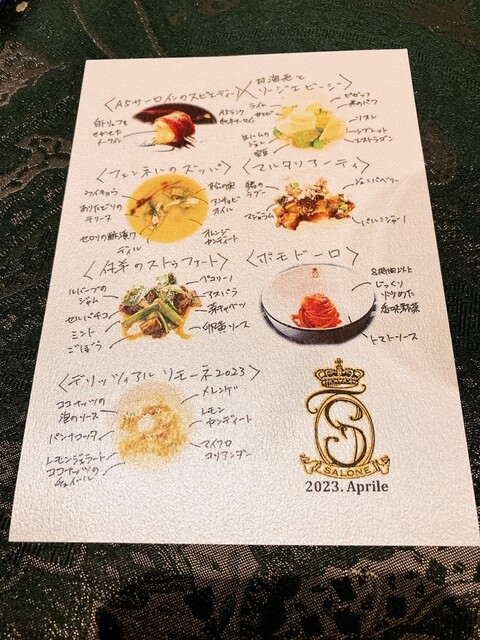 〈A5サーロインのスピエディーニ×甘海老と
リージエビージ〉
白トリュフを
きかせた
A5ランク
ライム
生ハムの
ジュレ
ピゼッリ
米のパフ
リコッタ
エストラゴン
〈フェンネルのズッパ〉
フィノッキョ
テリーヌ
セロリの酢漬け
ディル
松の実
アンチョビ
オイル
オレンジ
カンディート
〈マルタリアーティ〉
猪の
ラグー
マジョラム
ジュニパーベリー
パルミジャーノ
〈仔羊のストゥファート〉
ルバーブの
ジャム
セルバチコ
ミント
ごぼう
ペコリーノ
アスパラ
芽キャベツ
卵黄ソース
〈ポモドーロ〉
8時間以上
じっくり
炒めた
香味野菜
トマトソース
〈デリッツィア アル リモーネ2023〉
ココナッツの
泡のソース
パンナコッタ
レモンジェラート
ココナッツの
チュイール
メレンゲ
レモン
カンディート
マイクロ
コリアンダー
SALONE
2023. Aprile